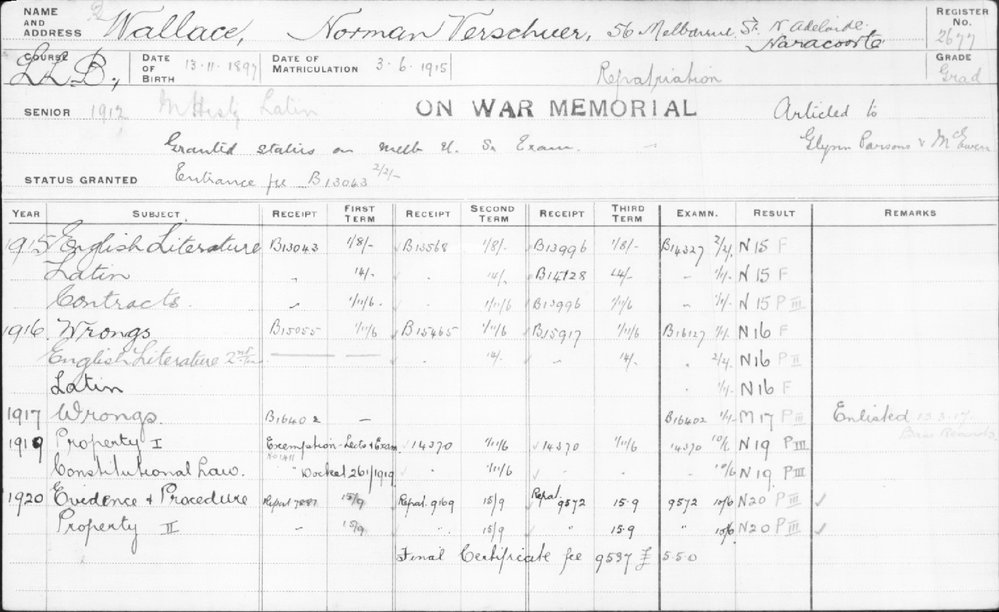 NAME AND ADDRESS Wallace, Norman Verschuer, 56 Melbourne St. N Adelaide. Naracoorte REGISTER NO. 2677
COURSE LL.B., DATE OF BIRTH 13.11.1897 DATE OF MATRICULATION 3.6.1915 Repatriation GRADE Grad
SENIOR 1912 M Histy Latin ON WAR MEMORIAL Articled to
Granted status on Melb U. Sr Exam. Glynn Parsons & McEwen
STATUS GRANTED Entrance fee B13043 2/2/-
YEAR SUBJECT. RECEIPT FIRST TERM RECEIPT SECOND TERM RECEIPT THIRD TERM EXAMN. RESULT REMARKS
1915 English Literature B13043 1/8/- B13568 1/8/- B13996 1/8/- B14327 2/2/. N15 F
Latin " 14/- " 14/. B14128 14/- " 1/1/. N15 F
Contracts. " 1/11/6 " 1/11/6 B13996 1/11/6 " 1/1/. N15 P III
1916 Wrongs B15055 1/11/6 B15465 1/11/6 B15917 1/11/6 B16127 1/1/. N16 F
English Literature — — " 14/. " 14/. " 2/2/. N16 P II
Latin " 1/1/. N16 F
1917 Wrongs. B16402 — B16402 1/1/- M17 P III Enlisted 13.3.17.
1919 Property I Exemption - Lects & Exam 14370 1/11/6 14370 1/11/6 14370 10/6 N19 P III
Constitutional Law. " Docket 261/1919 " 1/11/6 " " 10/6 N19 P III
1920 Evidence & Procedure Repat 15/9 Repat. 9169 15/9 Repat 9572 15.9 9572 10/6 N20 P III ✓
Property II " 15/9 " 15/9 15.9 " 10/6 N20 P III ✓
Final Certificate fee 9537 £ 5.5.0